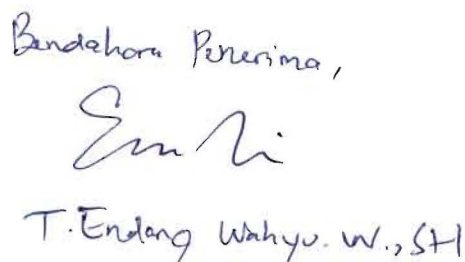 Bendahara Penerima,
T. Endang Wahyu. W., SH